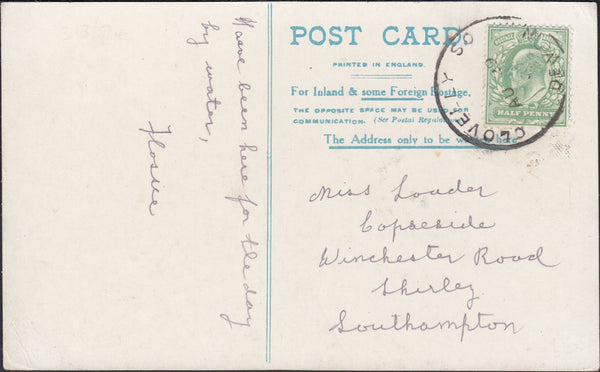 Have been here for the day
by water,
Flossie
POST CARD
PRINTED IN ENGLAND.
For Inland & some Foreign Postage,
THE OPPOSITE SPACE MAY BE USED FOR
COMMUNICATION. (See Postal Regulations
The Address only to be here
CLOVELLY
AU
DEVON
HALF PENNY
Miss Loader
Copseside
Winchester Road
Shirley
Southampton